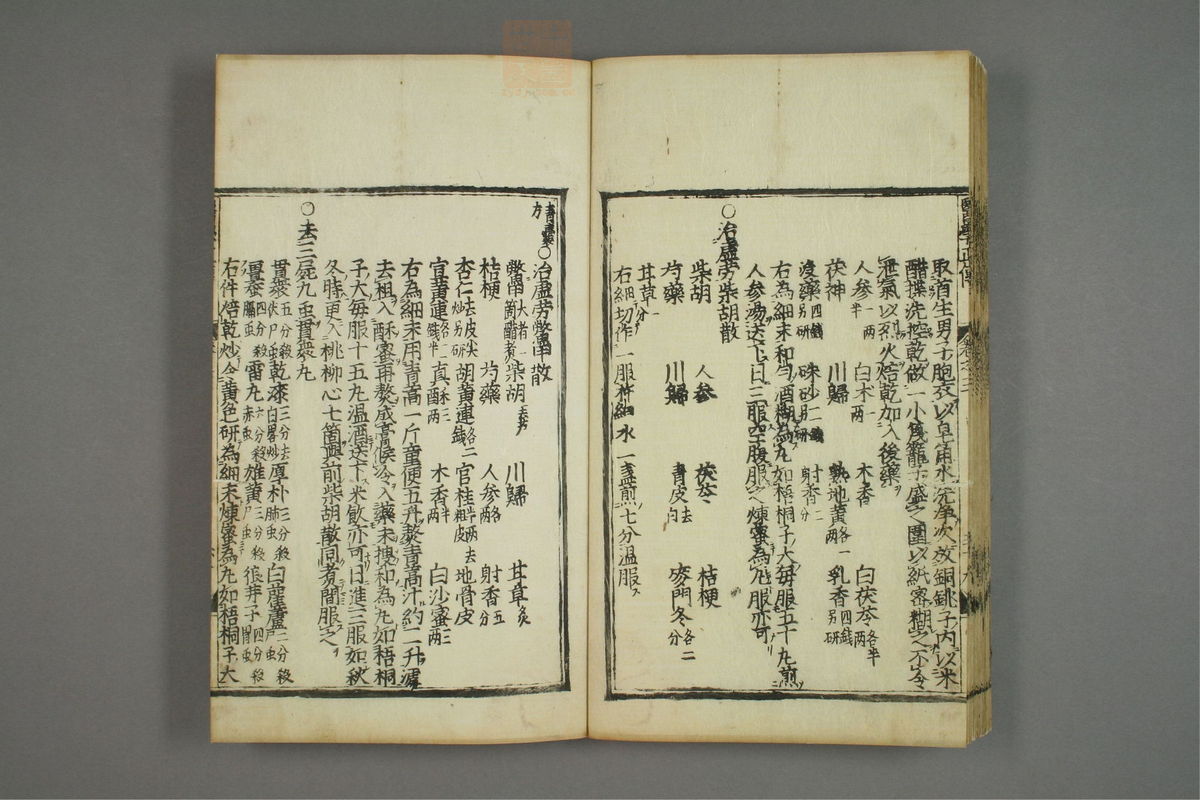 取首生男子胞衣以皁角水洗淨次放銅銚子内以米
醋撲洗控乾做一小篾籠子盛之圍以紙密糊之不令
泄氣以烈火焙乾加入後藥
人參一兩半 白朮一兩 木香 白茯苓各半兩
茯神 川歸 熟地黄各一兩 乳香四錢另研
沒藥四錢另研 硃砂二錢另研 射香二分
右為細末和勻酒糊為丸如梧桐子大每服五十丸煎
人參湯送下日三服空腹服之煉蜜為丸服亦可
○治虛勞柴胡散
柴胡 人參 茯苓 桔梗
芍藥 川歸 青皮去白 麥門冬各二分
甘草一分
右細切作一服 細水一盞煎七分温服
青囊方
○治虛勞鱉甲散
鱉甲大者一箇醋煮 柴胡 川歸 甘草炙
桔梗 芍藥 人參各兩 射香五分
杏仁去皮尖炒另研 胡黄連各二錢 官桂半兩去粗皮 地骨皮
宣黄連各二錢半 真酥三兩 木香半兩 白沙蜜三兩
右為細末用青蒿一斤童便五升熬青蒿汁約二升濾
去粗入酥蜜再熬成膏候冷入藥末搜和為丸如梧桐
子大每服十五丸温酒送下米飲亦可日進三服如秋
冬時更入桃柳心七箇與前柴胡散同煮間服之
○去三屍九虫貫衆丸
貫衆五分殺伏尸虫 乾漆三分去白畧炒 厚朴三分殺肺虫 白藋蘆二分殺尸虫
殭蚕四分殺膈虫 雷丸六分殺赤虫 雄黄三分殺虫 狼牙子四分殺胃虫
右件焙乾炒令黄色研為細末煉蜜為丸如梧桐子大